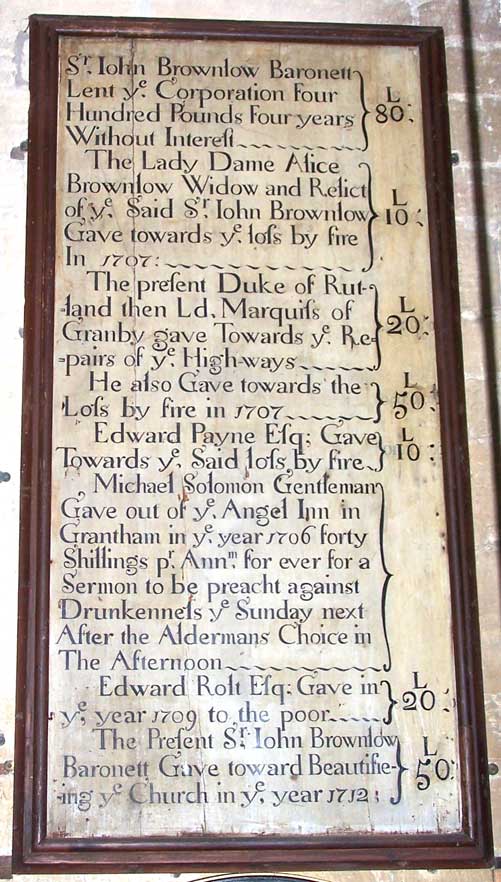 Sr. Iohn Brownlow Baronett
Lent ye. Corporation Four
Hundred Pounds Four years
Without Intereſt
L
80:
The Lady Dame Alice
Brownlow Widow and Relict
of ye. Said Sr. Iohn Brownlow
Gave towards ye. loſs by fire
In 1707:
L
10:
The preſent Duke of Rut-
-land then Ld, Marquiſs of
Granby gave Towards ye. Re-
-pairs of ye. High-ways
L
20:
He also Gave towards the
Loſs by fire in 1707
L
50:
Edward Payne Eſq; Gave
Towards ye. Said loſs by fire
L
10:
Michael Solomon Gentleman
Gave out of ye. Angel Inn in
Grantham in ye. year 1706 forty
Shillings pr. Annm. for ever for a
Sermon to be preacht against
Drunkenneſs ye Sunday next
After the Aldermans Choice in
The Afternoon
Edward Rolt Eſq; Gave in
ye. year 1709 to the poor
L
20:
The Preſent Sr. Iohn Brownlow
Baronett Gave toward Beautifie-
-ing ye Church in ye. year 1712:
L
50: